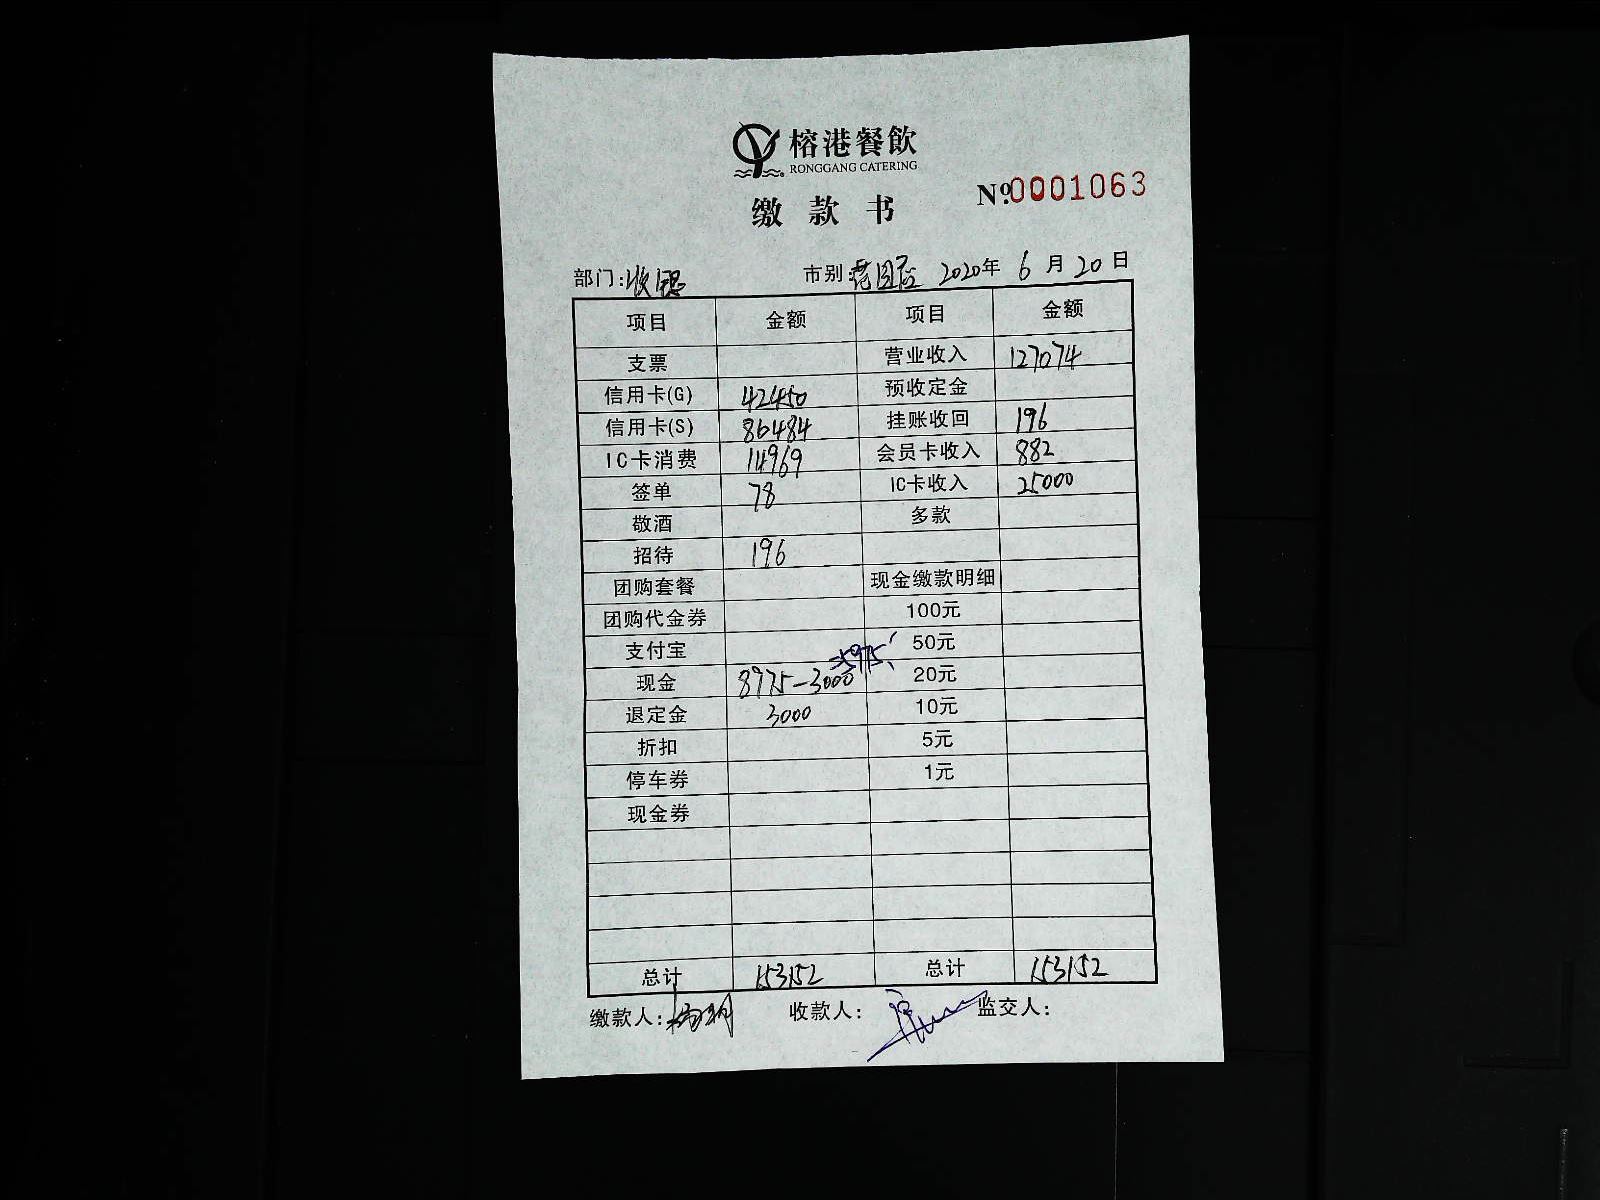 榕港餐飲
RONGGANG CATERING
缴款书
№0001063
部门:收银 市别 2020年 6月20日
项目 金额 项目 金额
支票 营业收入 127074
信用卡(G) 42450 预收定金
信用卡(S) 86484 挂账收回 196
IC卡消费 14969 会员卡收入 882
签单 78 IC卡收入 25000
敬酒 多款
招待 196
团购套餐 现金缴款明细
团购代金券 100元
支付宝 50元
现金 8975-3000 =5975 20元
退定金 3000 10元
折扣 5元
停车券 1元
现金券
总计 153152 总计 153152
缴款人: 收款人: 监交人: